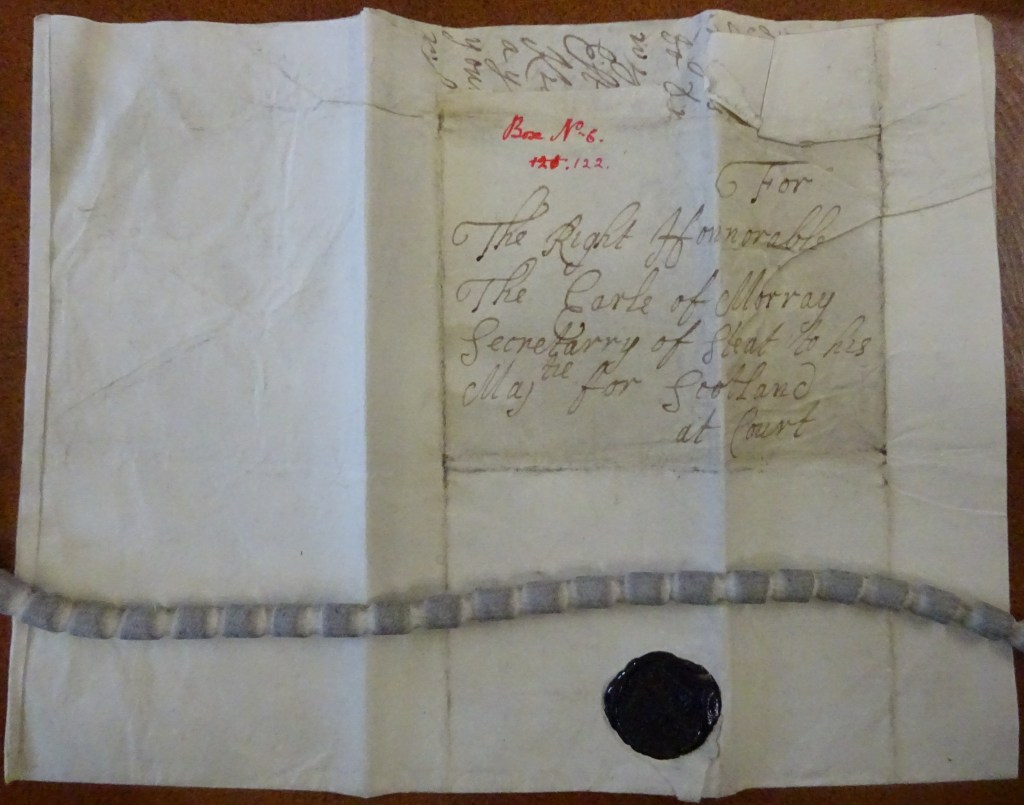 Box No. 6.
126. 122.
For
The Right Honnorable
The Earle of Morray
Secretarry of Steat to his
Majtie for Scotland
at Court
you
ay